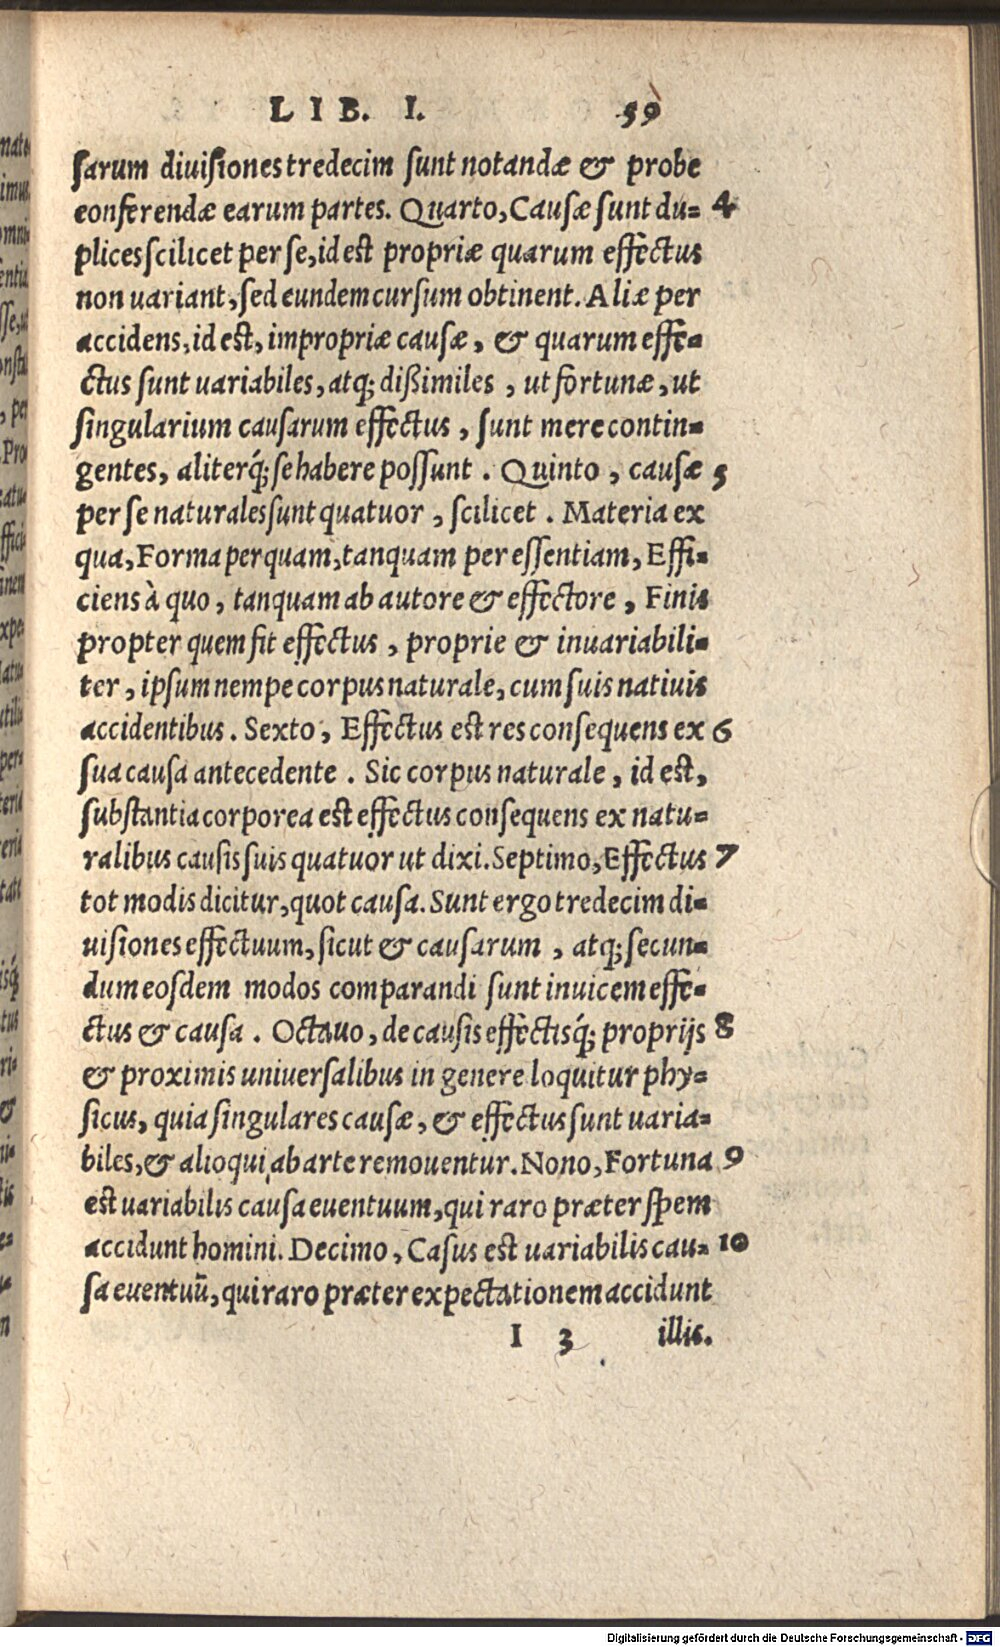 LIB. I. 59
ſarum diuiſiones tredecim ſunt notandæ & probe
eonferendæ earum partes. Quarto, Cauſæ ſunt du= 4
plices ſcilicet per ſe, id est propriæ quarum effectus
non uariant, ſed eundem curſum obtinent. Aliæ per
accidens, id est, impropriæ cauſæ, & quarum effe=
ctus ſunt uariabiles, atq; dißimiles, ut fortunæ, ut
ſingularium cauſarum effectus, ſunt mere contin=
gentes, aliterq́; ſe habere poſſunt. Quinto, cauſæ 5
per ſe naturales ſunt quatuor, ſcilicet. Materia ex
qua, Forma per quam, tanquam per eſſentiam, Effi=
ciens à quo, tanquam ab autore & effectore, Finis
propter quem fit effectus, proprie & inuariabili=
ter, ipſum nempe corpus naturale, cum ſuis natiuis
accidentibus. Sexto, Effectus est res conſequens ex 6
ſua cauſa antecedente. Sic corpus naturale, id est,
ſubſtantia corporea est effectus conſequens ex natu=
ralibus cauſis ſuis quatuor ut dixi. Septimo, Effectus 7
tot modis dicitur, quot cauſa. Sunt ergo tredecim di=
uiſiones effectuum, ſicut & cauſarum, atq; ſecun=
dum eoſdem modos comparandi ſunt inuicem effe=
ctus & cauſa. Octauo, de cauſis effectisq́; proprijs 8
& proximis uniuerſalibus in genere loquitur phy=
ſicus, quia ſingulares cauſæ, & effectus ſunt uaria=
biles, & alioqui ab arte remouentur. Nono, Fortuna 9
est uariabilis cauſa euentuum, qui raro præter ſpem
accidunt homini. Decimo, Caſus est uariabilis cau= 10
ſa euentuū, qui raro præter expectationem accidunt
I 3 illis.
Digitalisierung gefördert durch die Deutsche Forschungsgemeinschaft - DFG